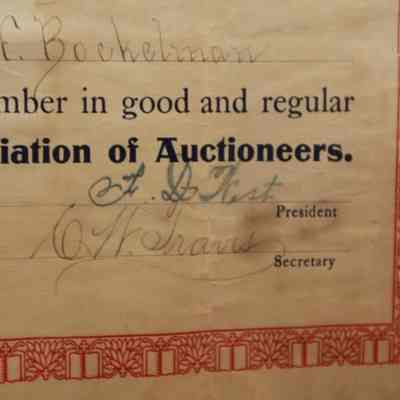 C. Bockelman
mber in good and regular
iation of Auctioneers.
F. D.
President
C. W. Graves
Secretary